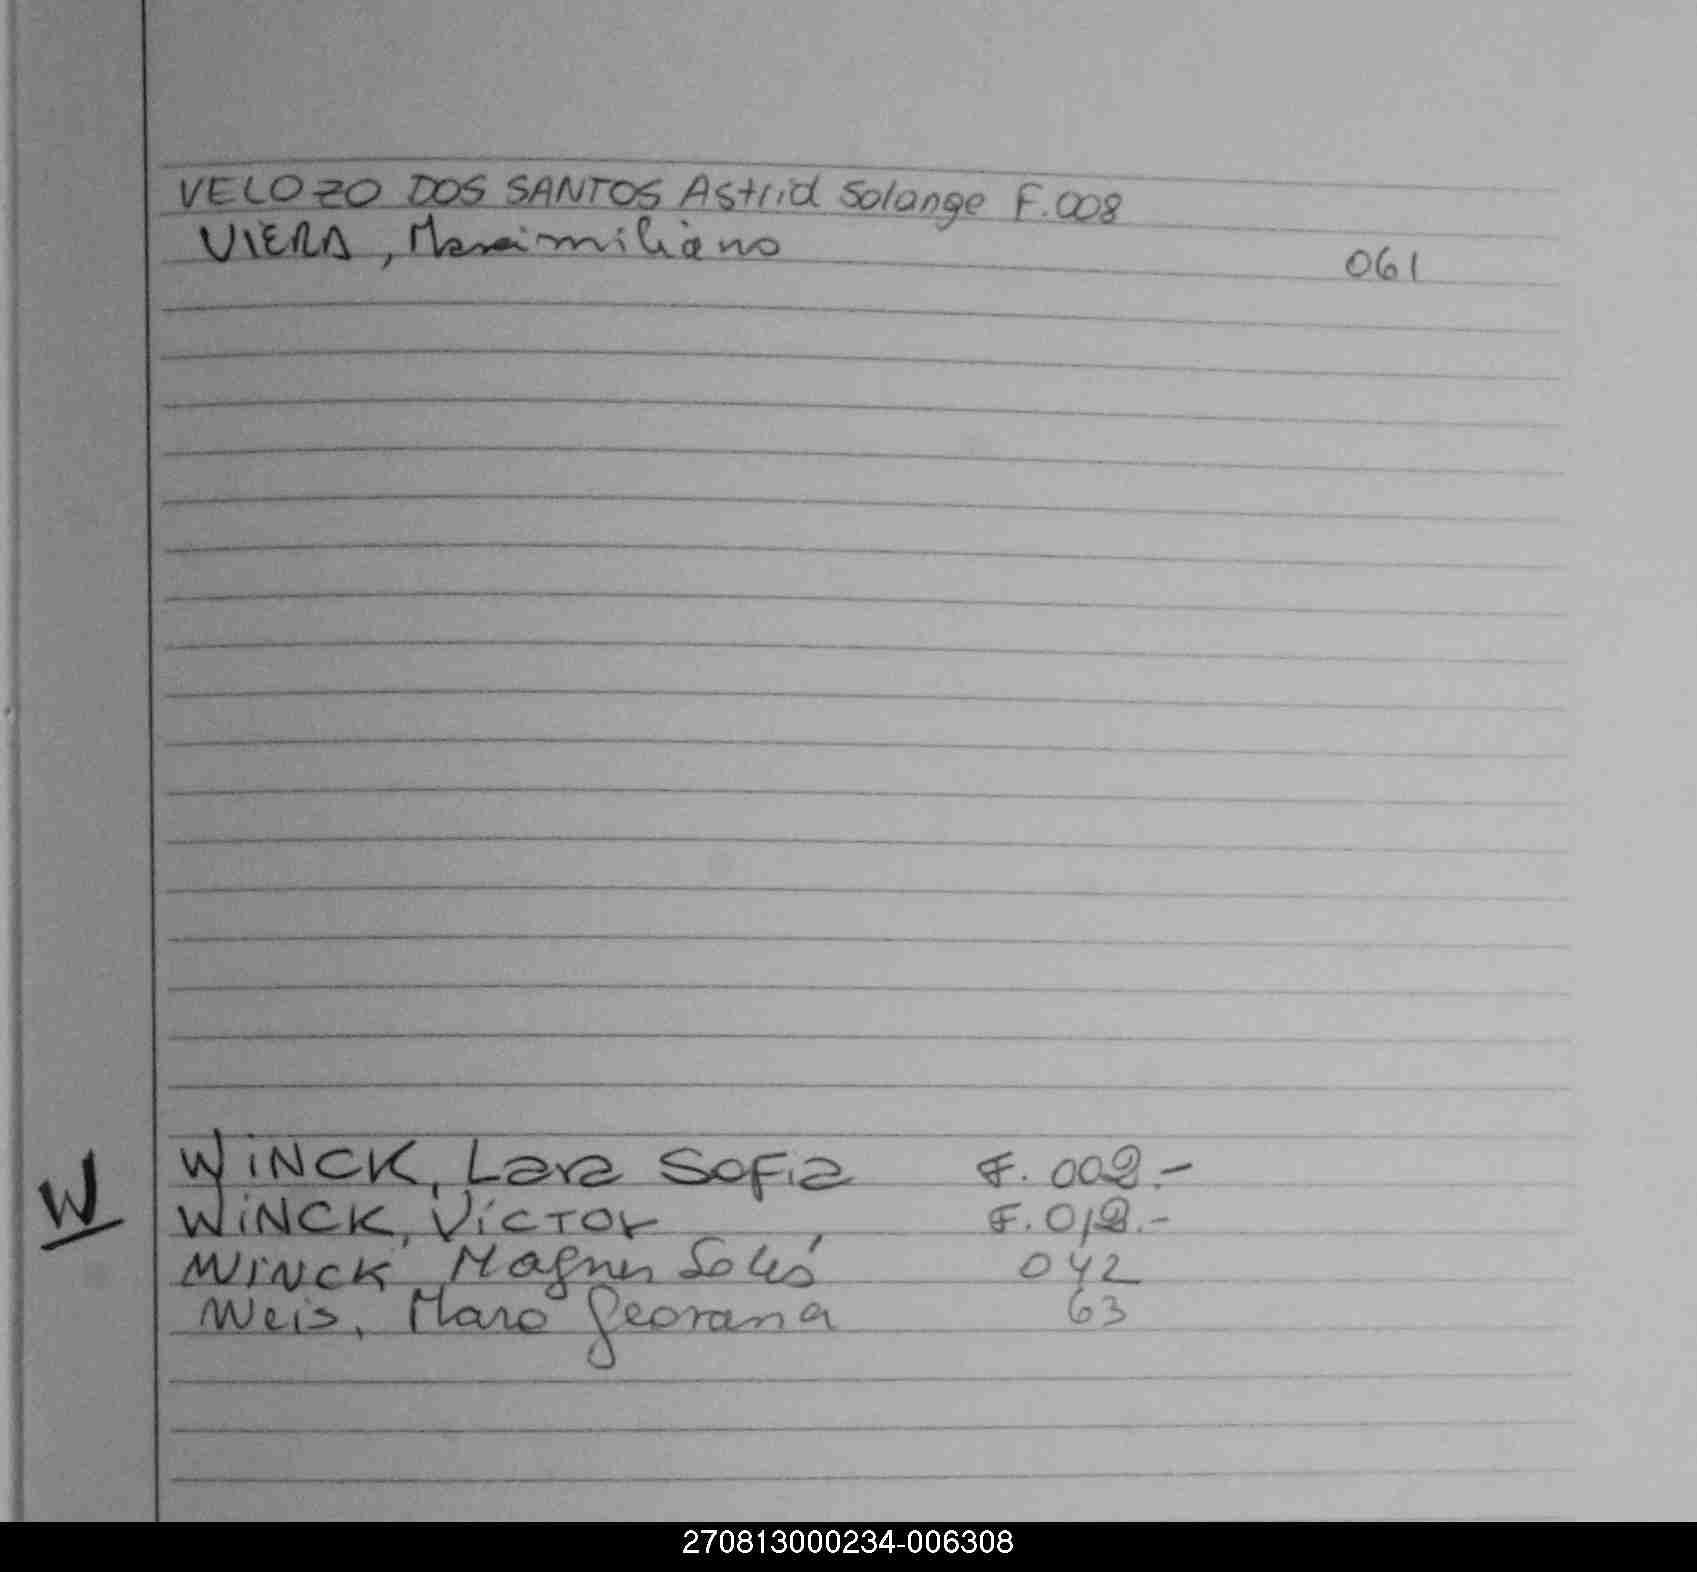 VELOZO DOS SANTOS Astrid Solange F.008
VIERA, Maximiliano 061
WINCK, Lara Sofia F. 002.-
W WINCK, Víctor F. 012.-
WINCK 042
Weis, 63
270813000234-006308